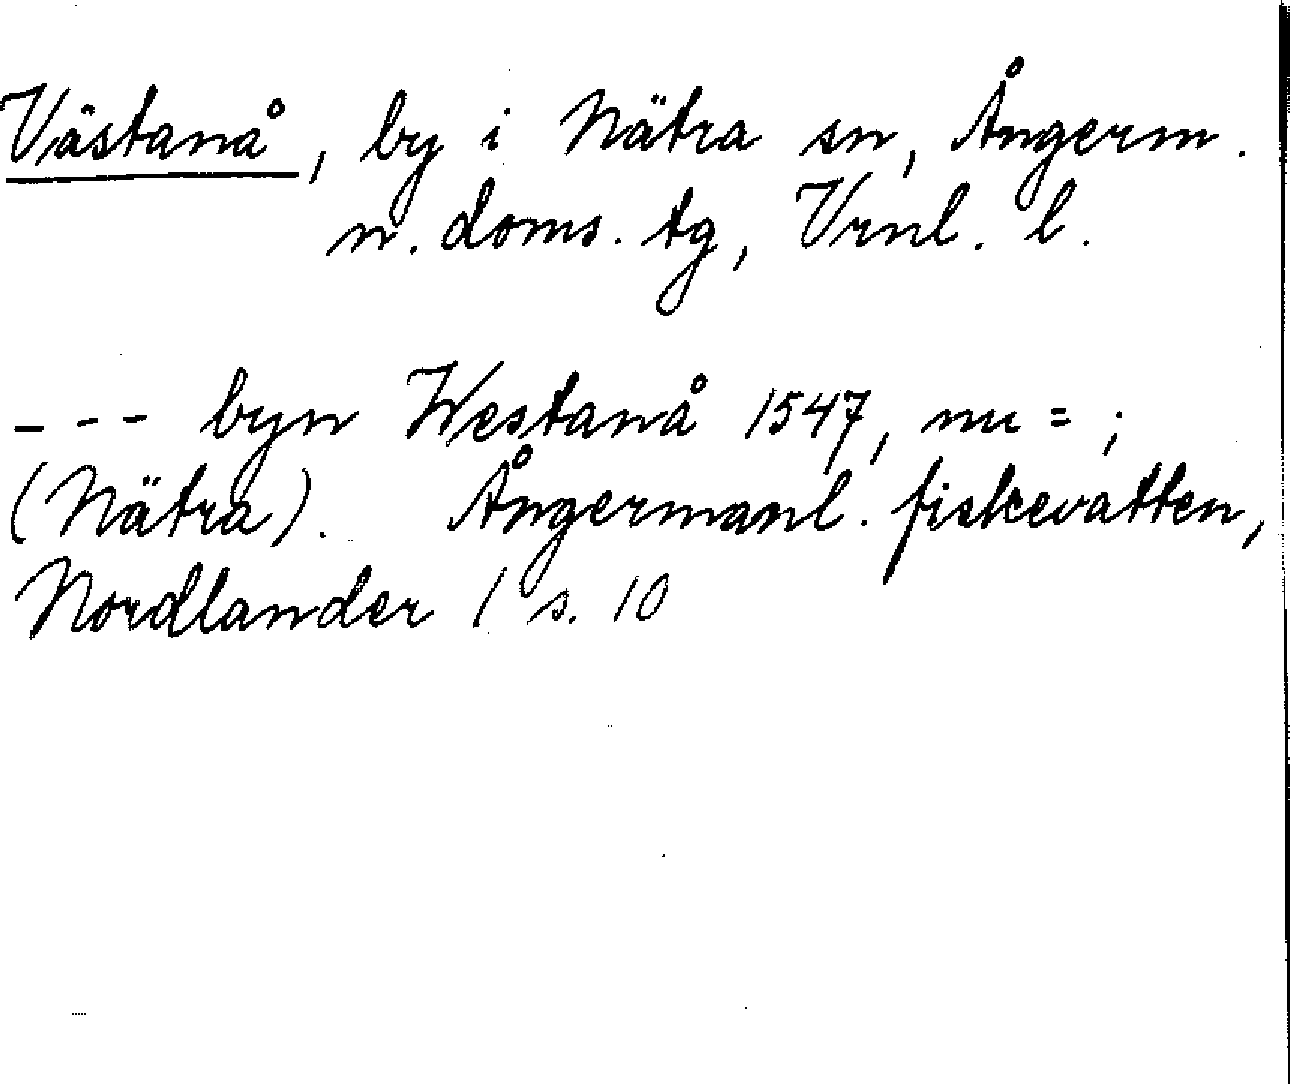 Västanå, by i Nätra sn, Ångerm.
n. doms. tg, Vrnl. l.
- - - byn Westanå 1547, nu = ;
(Nätra). Ångermanl. fiskevatten,
Nordlander 1 s. 10